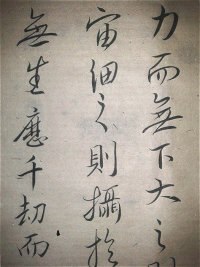 力而無下大之則
宙細之則攝於
無生應千劫而